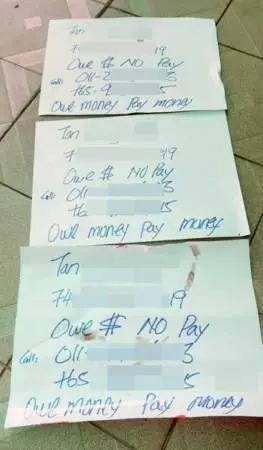 Tan
7 19
Owe $ NO Pay
Call: 011-2 3
+65-9 5
Owe money Pay money
Tan
7 19
Owe $ NO Pay
Call: 011 3
+6 5
Owe money Pay money
Tan
74 19
Owe $ NO Pay
Call: 011- 3
+65 5
Owe money Pay money